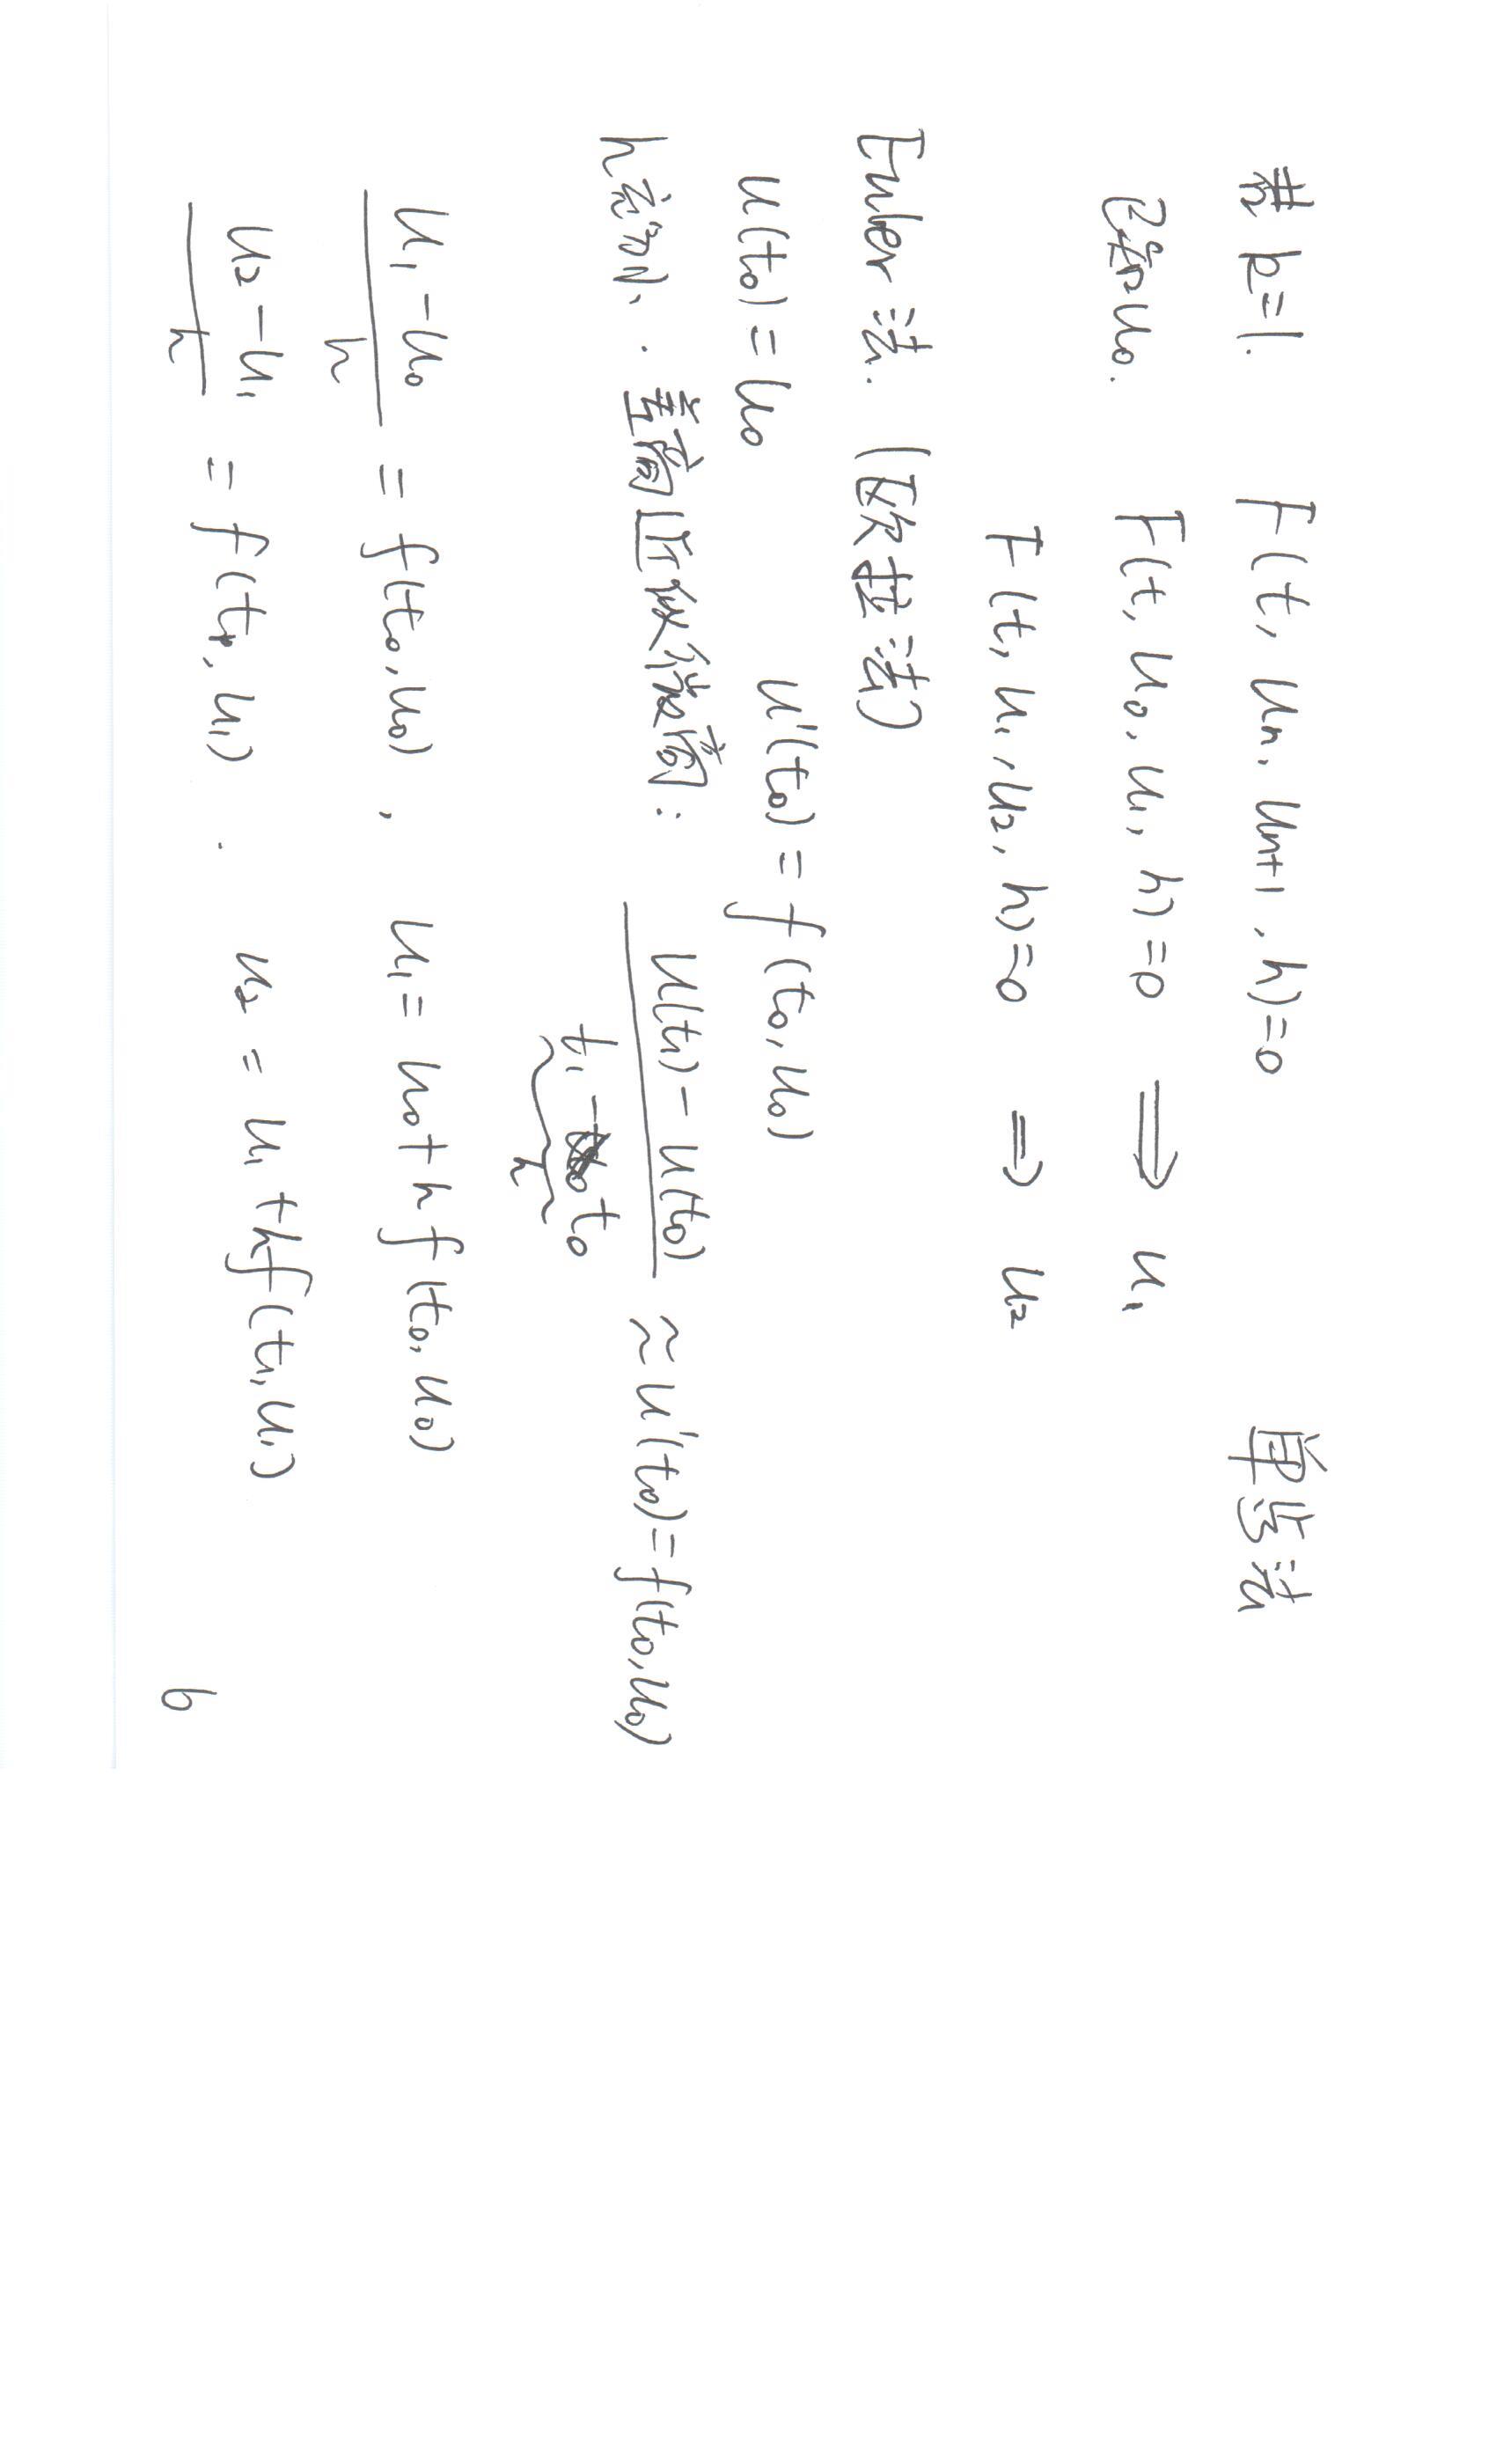 若 k=1. F(t, un, un+1, h)=0 单步法
已知u0. F(t, u0, u1, h)=0 ⟹ u1
F(t, u1, u2, h)=0 ⟹ u2
Euler 法. (欧拉法)
u(t0)=u0 u'(t0)=f(t0,u0)
h充分小. 差商近似微商: (u(t1)-u(t0))/(t1-t0) ≈ u'(t0)=f(t0,u0)
h
(u1-u0)/h = f(t0,u0), u1=u0+hf(t0,u0)
(u2-u1)/h = f(t1,u1). u2=u1+hf(t1,u1)
6